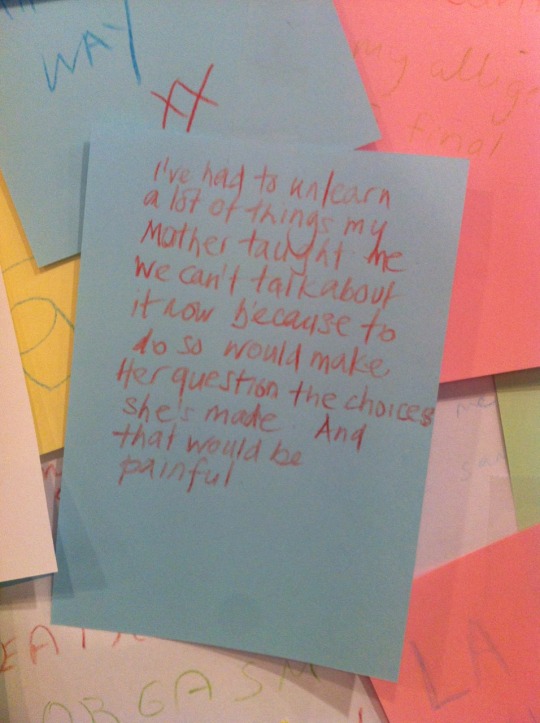 WAY
XX
my allig
final
I've had to unlearn
a lot of things my
Mother taught me
We can't talk about
it now because to
do so would make
Her question the choices
she's made. And
that would be
painful
me
EAT
ORGASM
LA